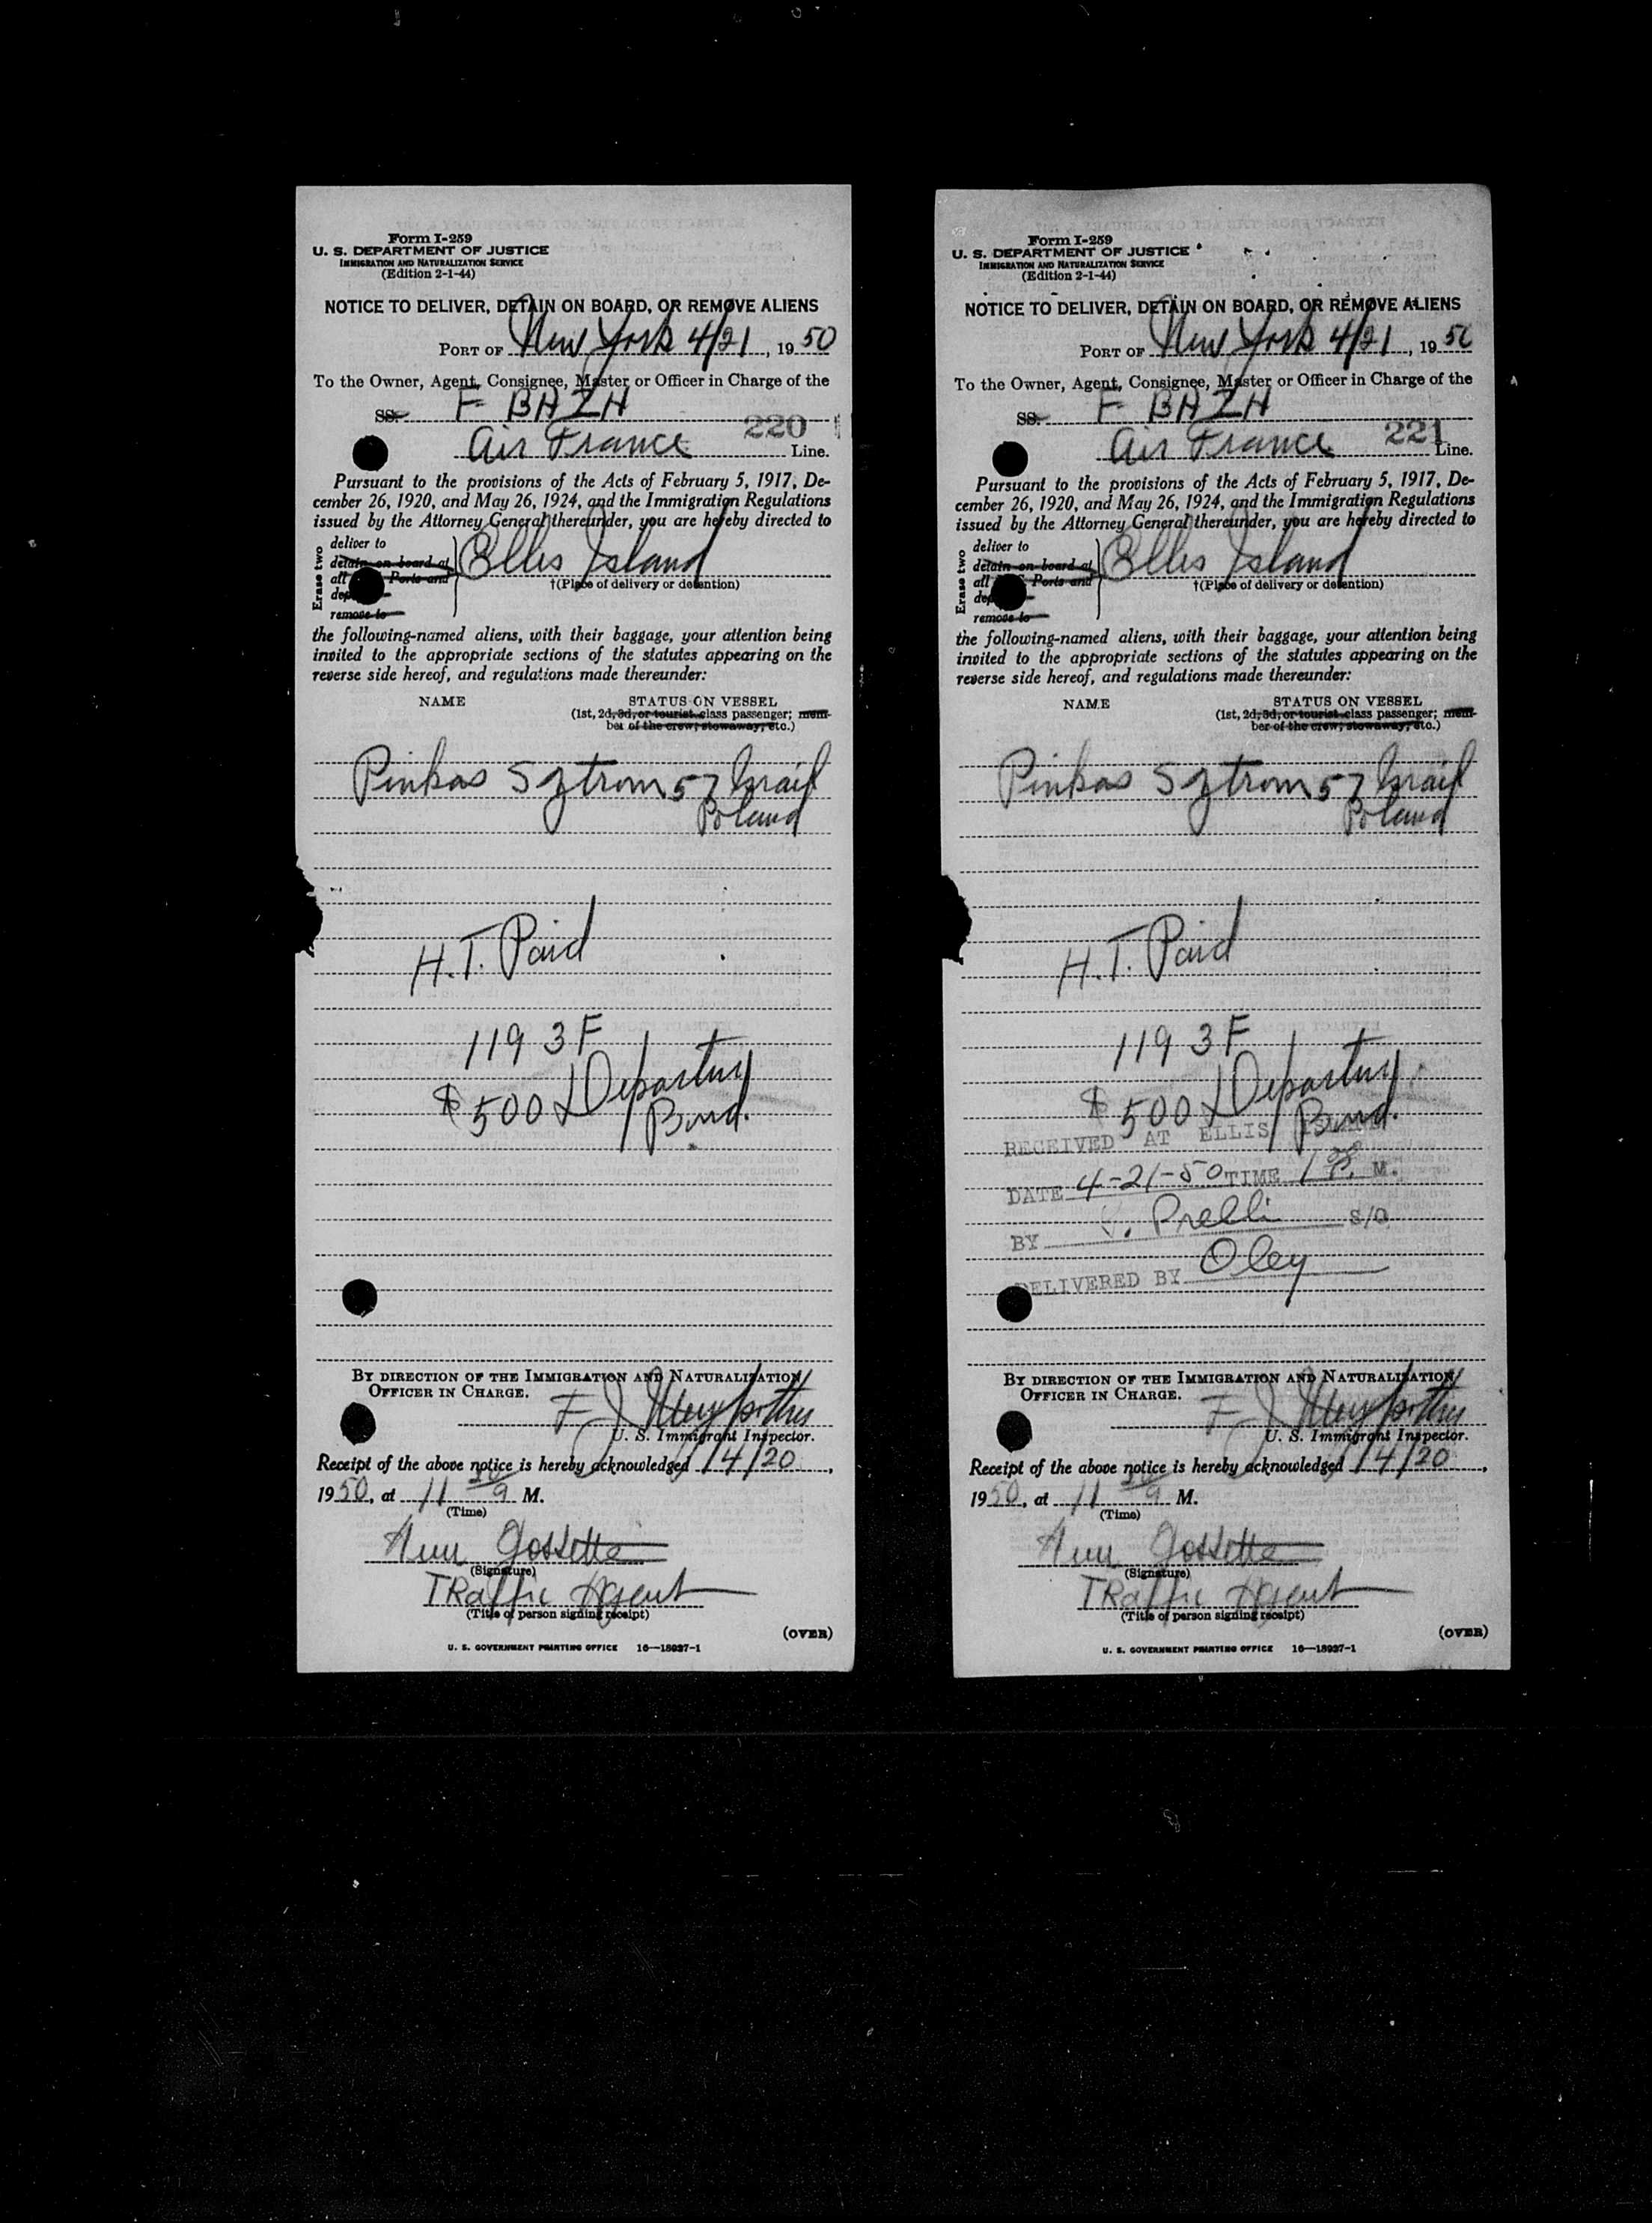 Form I-259
U. S. DEPARTMENT OF JUSTICE
IMMIGRATION AND NATURALIZATION SERVICE
(Edition 2-1-44)
NOTICE TO DELIVER, DETAIN ON BOARD, OR REMOVE ALIENS
PORT OF New York 4/21, 1950
To the Owner, Agent, Consignee, Master or Officer in Charge of the
SS. F BAZH
220
Air France Line.
Pursuant to the provisions of the Acts of February 5, 1917, De-
cember 26, 1920, and May 26, 1924, and the Immigration Regulations
issued by the Attorney General thereunder, you are hereby directed to
Erase two
deliver to
detain on board at
all Ports and
remove to
Ellis Island
†(Place of delivery or detention)
the following-named aliens, with their baggage, your attention being
invited to the appropriate sections of the statutes appearing on the
reverse side hereof, and regulations made thereunder:
NAME STATUS ON VESSEL
(1st, 2d, 3d, or tourist class passenger; mem-
ber of the crew, stowaway, etc.)
Pinkas Sztrom 57 Israel
Poland
H.T. Paid
119 3F
$500 Departure
Bond.
BY DIRECTION OF THE IMMIGRATION AND NATURALIZATION
OFFICER IN CHARGE.
F J
U. S. Immigrant Inspector.
Receipt of the above notice is hereby acknowledged 4/20,
1950, at 11 M.
(Time)
Ann Gossette
(Signature)
Traffic Agent
(Title of person signing receipt)
(OVER)
U. S. GOVERNMENT PRINTING OFFICE 16—18037-1
Form I-259
U. S. DEPARTMENT OF JUSTICE
IMMIGRATION AND NATURALIZATION SERVICE
(Edition 2-1-44)
NOTICE TO DELIVER, DETAIN ON BOARD, OR REMOVE ALIENS
PORT OF New York 4/21, 1950
To the Owner, Agent, Consignee, Master or Officer in Charge of the
SS. F BAZH
221
Air France Line.
Pursuant to the provisions of the Acts of February 5, 1917, De-
cember 26, 1920, and May 26, 1924, and the Immigration Regulations
issued by the Attorney General thereunder, you are hereby directed to
Erase two
deliver to
detain on board at
all Ports and
remove to
Ellis Island
†(Place of delivery or detention)
the following-named aliens, with their baggage, your attention being
invited to the appropriate sections of the statutes appearing on the
reverse side hereof, and regulations made thereunder:
NAME STATUS ON VESSEL
(1st, 2d, 3d, or tourist class passenger; mem-
ber of the crew, stowaway, etc.)
Pinkas Sztrom 57 Israel
Poland
H.T. Paid
119 3F
$500 Departure
Bond.
RECEIVED AT ELLIS ISLAND
DATE 4-21-50 TIME 1 P. M.
BY Prelli S/O
DELIVERED BY Oley
BY DIRECTION OF THE IMMIGRATION AND NATURALIZATION
OFFICER IN CHARGE.
F J
U. S. Immigrant Inspector.
Receipt of the above notice is hereby acknowledged 4/20,
1950, at 11 M.
(Time)
Ann Gossette
(Signature)
Traffic Agent
(Title of person signing receipt)
(OVER)
U. S. GOVERNMENT PRINTING OFFICE 16—18037-1